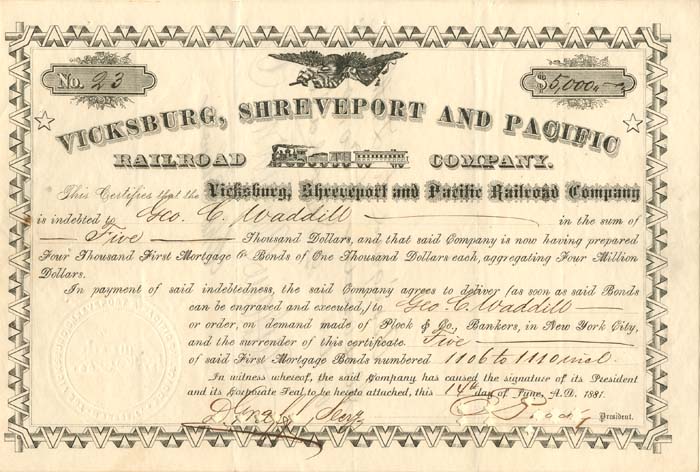 No. 23
$5,000
VICKSBURG, SHREVEPORT AND PACIFIC
RAILROAD COMPANY.
This Certifies that the Vicksburg, Shreveport and Pacific Railroad Company
is indebted to Geo. C. Waddill in the sum of
Five Thousand Dollars, and that said Company is now having prepared
Four Thousand First Mortgage 6% Bonds of One Thousand Dollars each, aggregating Four Million
Dollars.
In payment of said indebtedness, the said Company agrees to deliver (as soon as said Bonds
can be engraved and executed,) to Geo. C. Waddill
or order, on demand made of Plock & Co., Bankers, in New York City,
and the surrender of this certificate Five
of said First Mortgage Bonds numbered 1106 to 1110 incl.
In witness whereof, the said Company has caused the signature of its President
and its Corporate Seal to be hereto attached, this 14th day of June, A.D. 1881.
President.